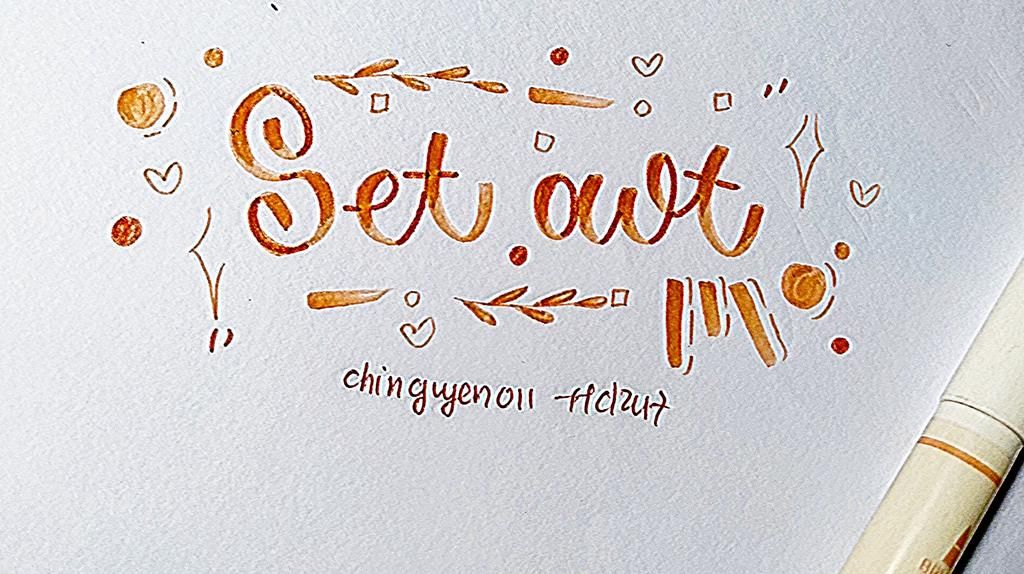 Set out
chinguyen011 - Hd247